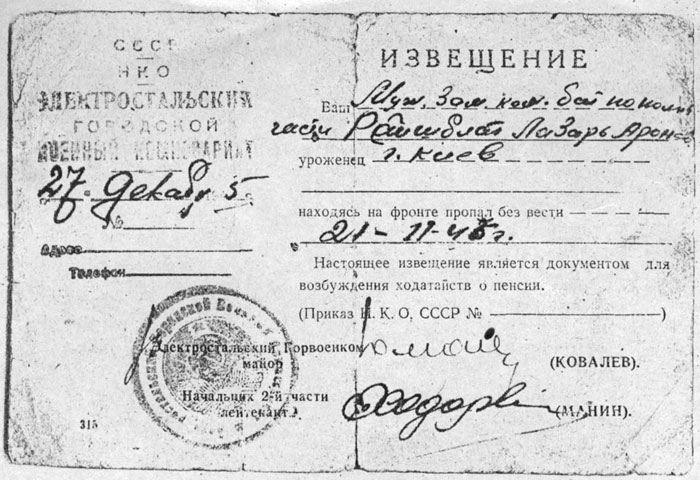 СССР
НКО
ЭЛЕКТРОСТАЛЬСКИЙ
ГОРОДСКОЙ
ВОЕННЫЙ КОМИССАРИАТ
27 Декабр 5
№
Адрес
Телефон
315
ИЗВЕЩЕНИЕ
Ваш Муж Зам. ком. бат по полит
части Лазарь Арон
уроженец г. Киев
находясь на фронте пропал без вести
21-11-4 г.
Настоящее извещение является документом для
возбуждения ходатайств о пенсии.
(Приказ Н. К. О, СССР № )
Электростальский Горвоенком
майор
(КОВАЛЕВ).
Начальник 2-й части
лейтенант
(МАНИН).